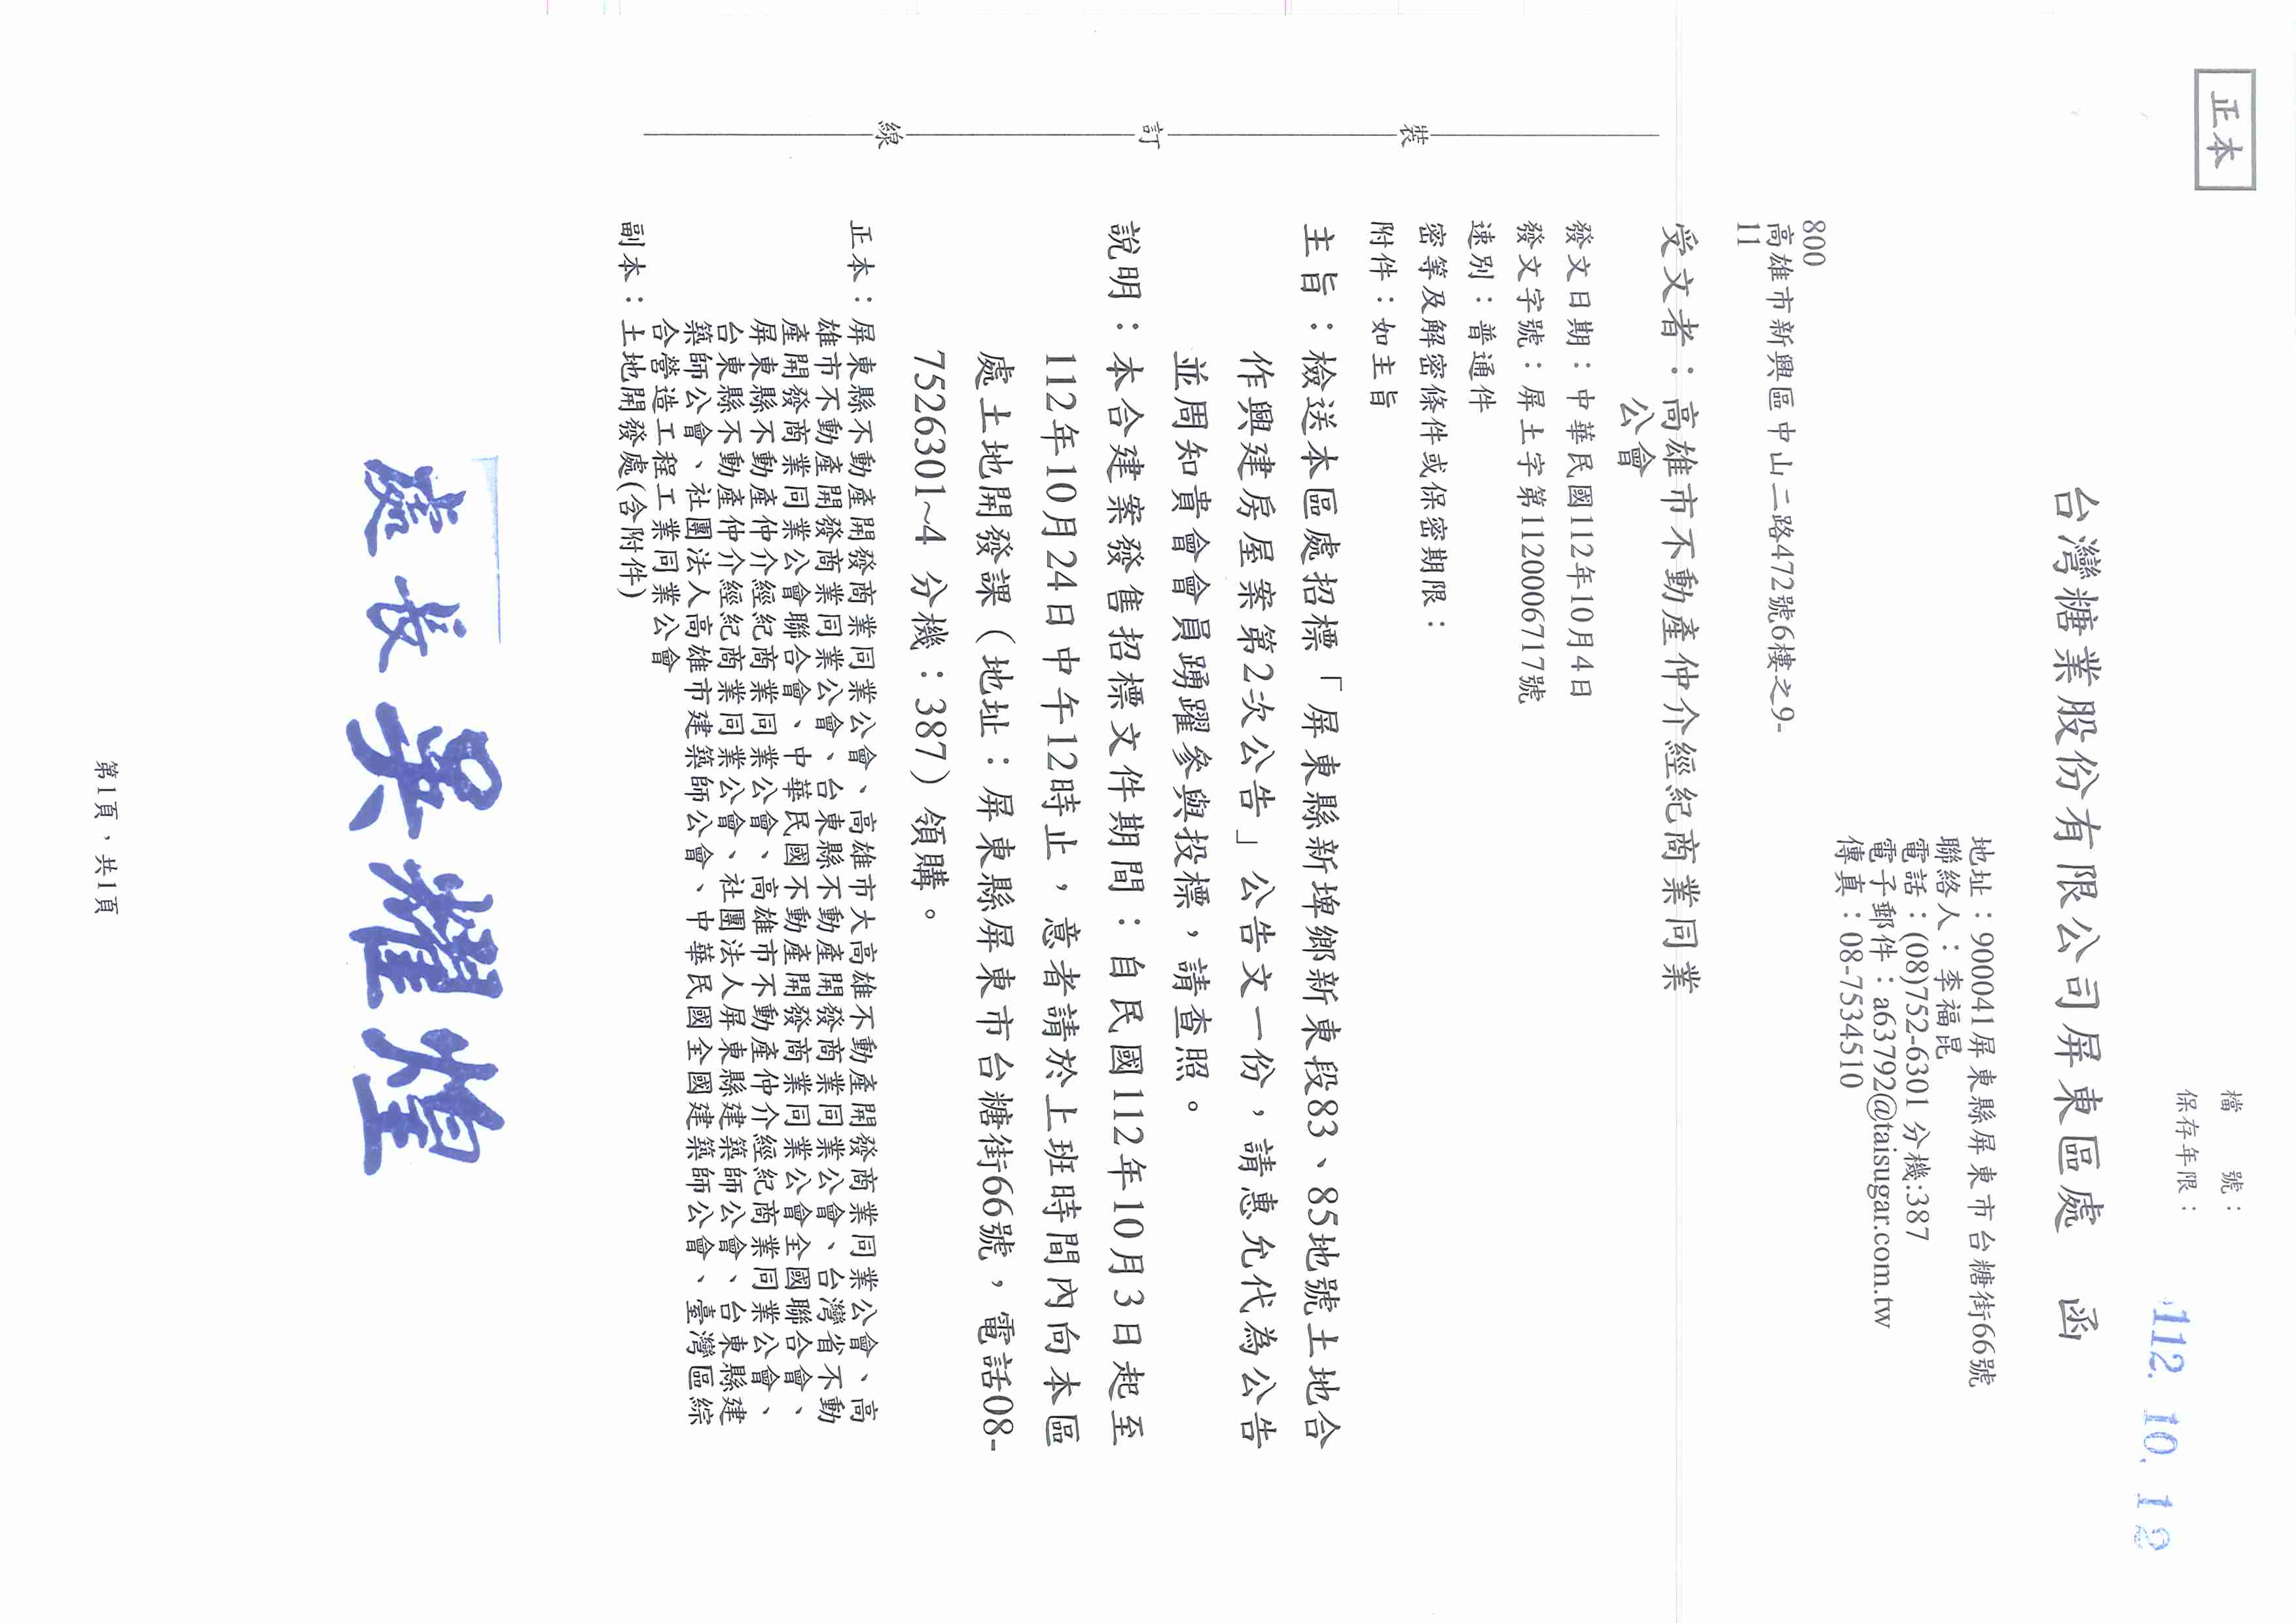 正本
檔　　號：
保存年限：
112. 10. 12
台灣糖業股份有限公司屏東區處　函
地址：900041屏東縣屏東市台糖街66號
聯絡人：李福昆
電話：(08)752-6301 分機:387
電子郵件：a63792@taisugar.com.tw
傳真：08-7534510
800
高雄市新興區中山二路472號6樓之9-
11
受文者：高雄市不動產仲介經紀商業同業
公會
發文日期：中華民國112年10月4日
發文字號：屏土字第1120006717號
速別：普通件
密等及解密條件或保密期限：
附件：如主旨
主旨：檢送本區處招標「屏東縣新埤鄉新東段83、85地號土地合
作興建房屋案第2次公告」公告文一份，請惠允代為公告
並周知貴會會員踴躍參與投標，請查照。
說明：本合建案發售招標文件期間：自民國112年10月3日起至
112年10月24日中午12時止，意者請於上班時間內向本區
處土地開發課（地址：屏東縣屏東市台糖街66號，電話08-
7526301~4 分機：387）領購。
正本：屏東縣不動產開發商業同業公會、高雄市大高雄不動產開發商業同業公會、高
雄市不動產開發商業同業公會、台東縣不動產開發商業同業公會、台灣省不動
產開發商業同業公會聯合會、中華民國不動產開發商業同業公會全國聯合會、
屏東縣不動產仲介經紀商業同業公會、高雄市不動產仲介經紀商業同業公會、
台東縣不動產仲介經紀商業同業公會、社團法人屏東縣建築師公會、台東縣建
築師公會、社團法人高雄市建築師公會、中華民國全國建築師公會、臺灣區綜
合營造工程工業同業公會
副本：土地開發處(含附件)
處長吳耀煌
裝
訂
線
第1頁，共1頁